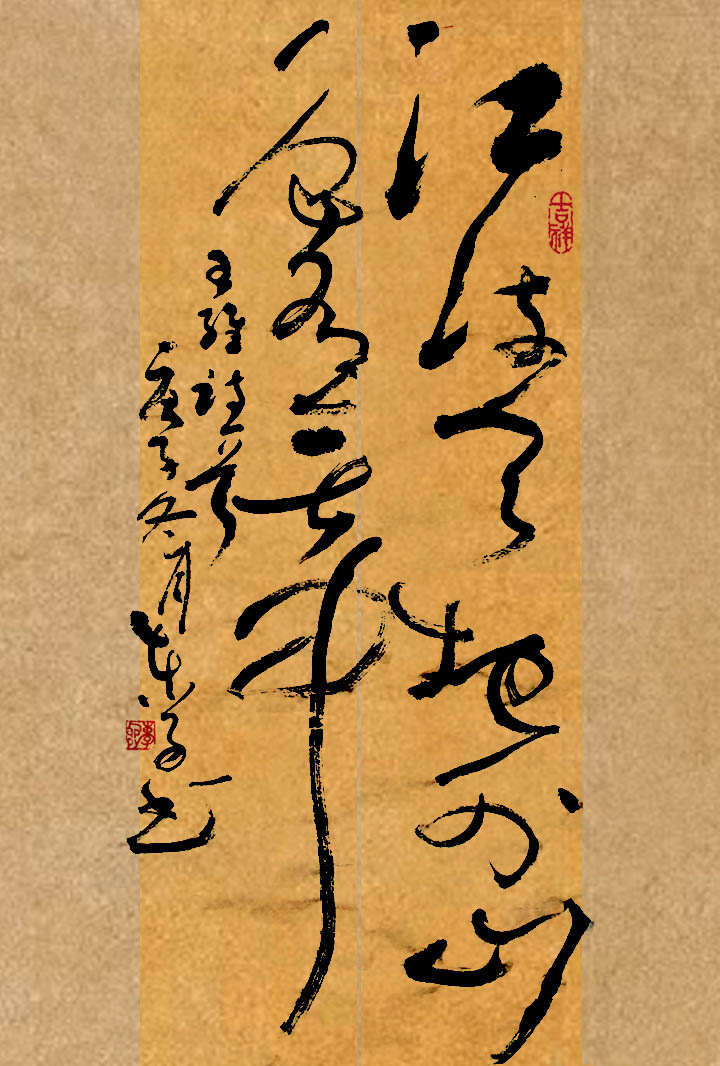 江流天地外山
色有無中
王維詩
庚子冬月 子书
吉祥